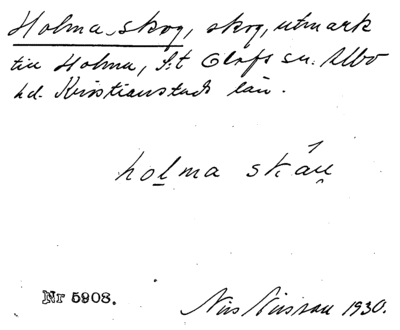 Holma skog, skog, utmark
till Holma, S:t Olofs sn. Albo
hd. Kristianstads län.
holma skáu̯
Nr 5908.
Nils Nilsson 1930.